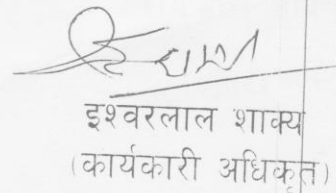 इश्वरलाल शाक्य
(कार्यकारी अधिकृत)